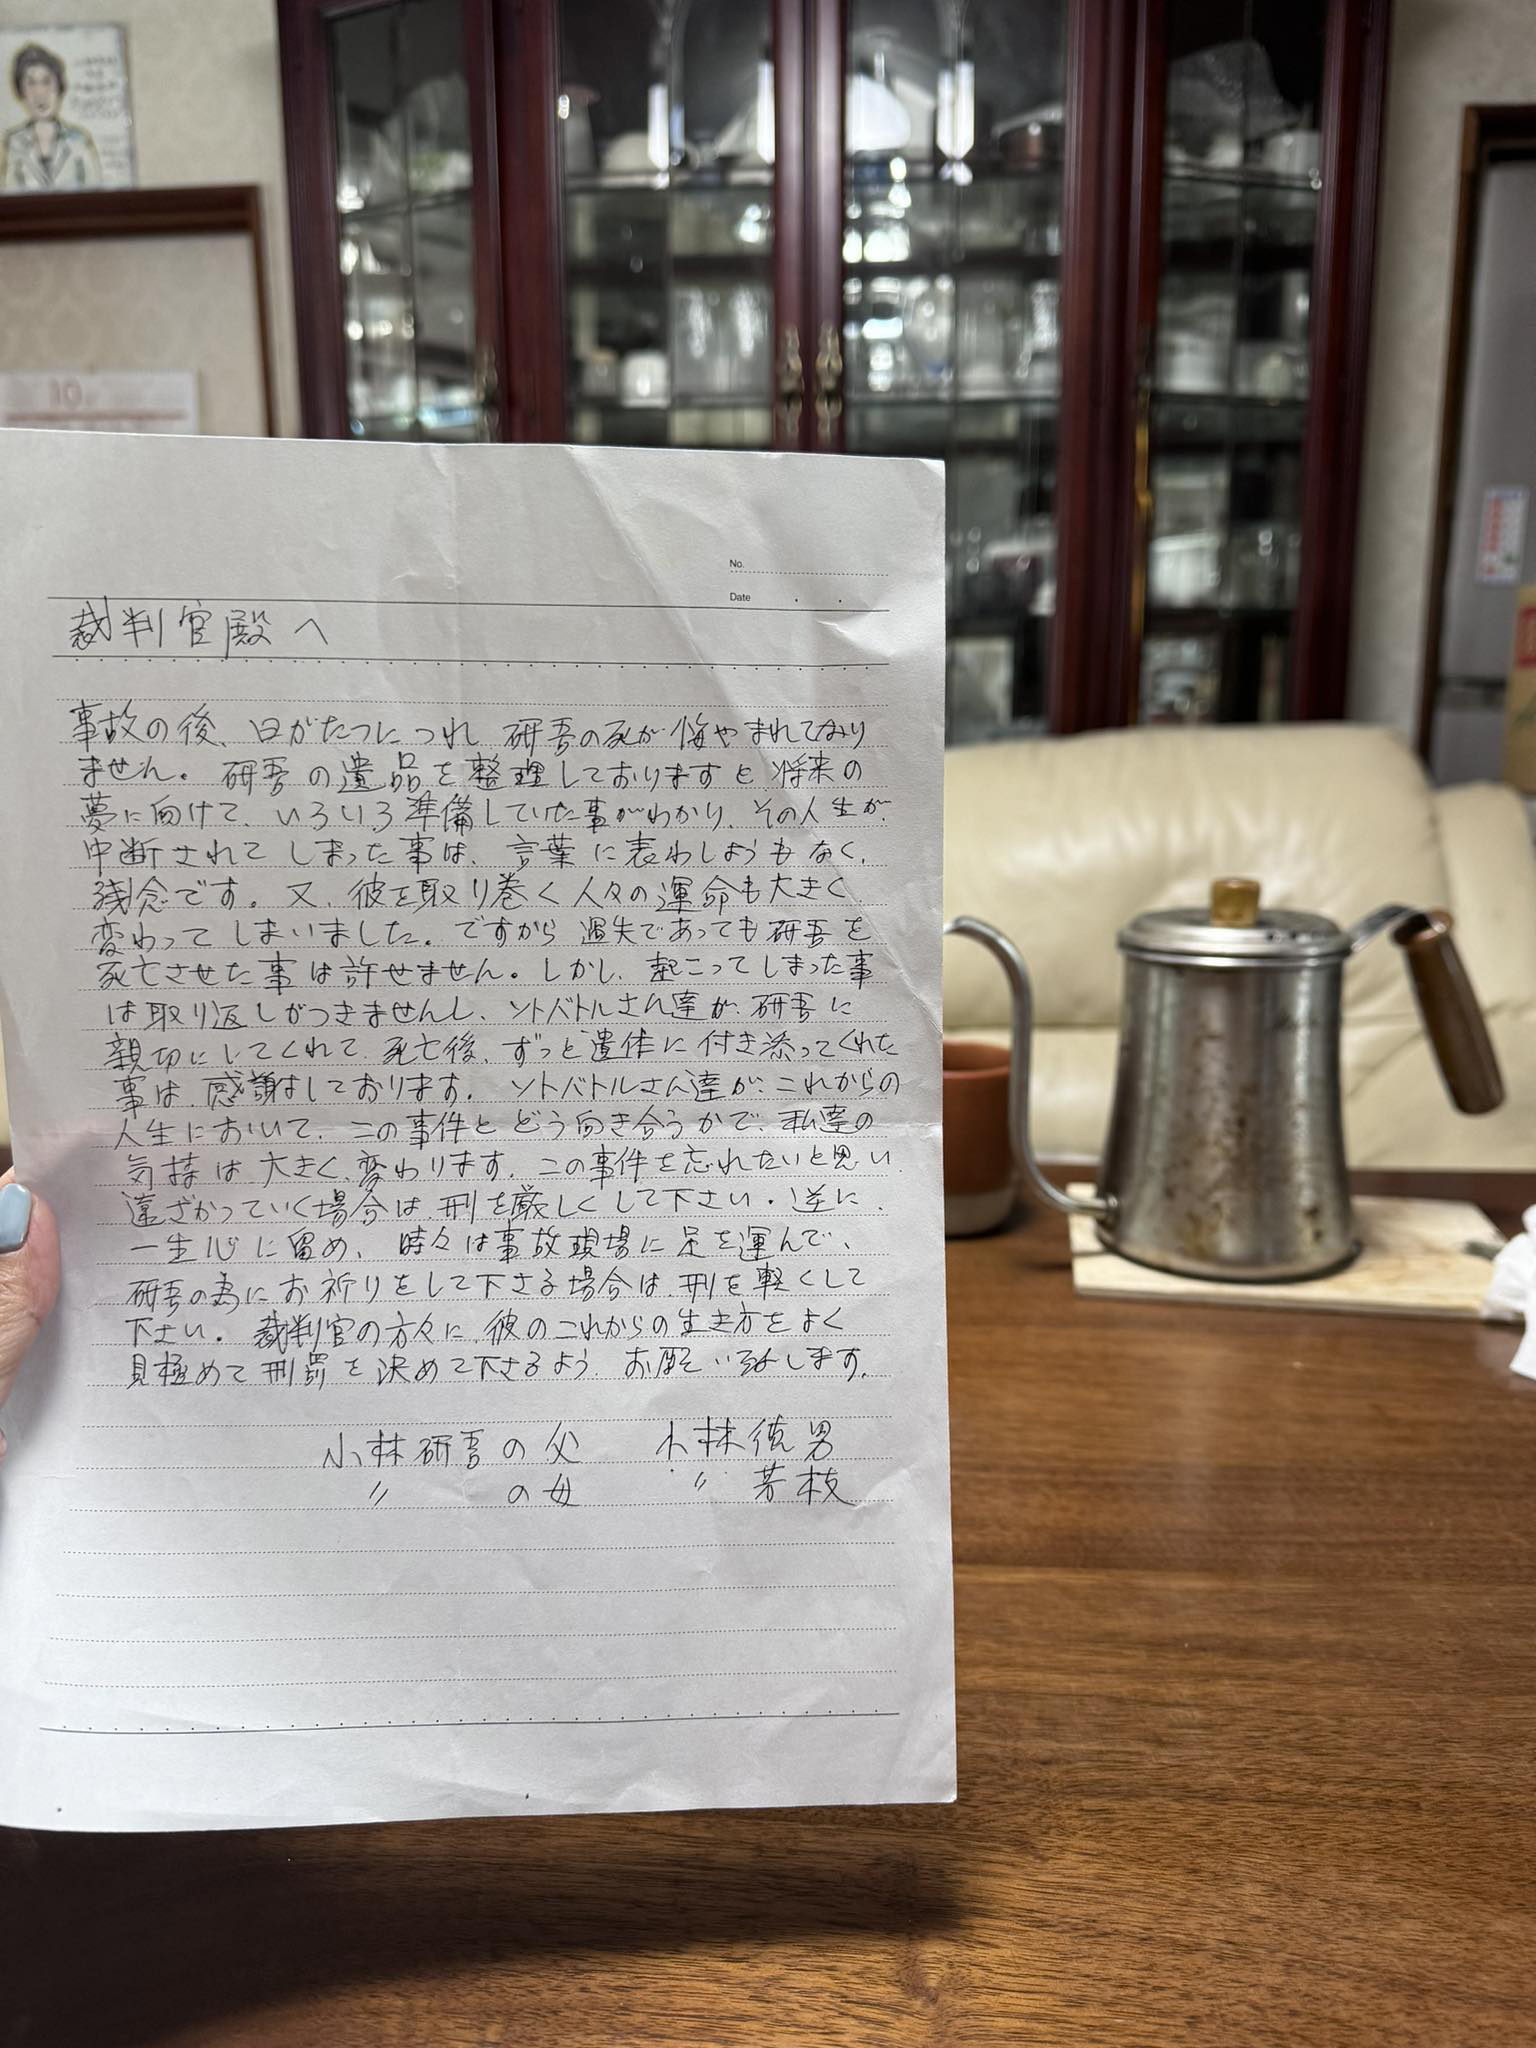 10
No.
Date
裁判官殿へ
事故の後、日がたつにつれ 研吾の死が悔やまれてなり
ません。研吾の遺品を整理しておりますと将来の
夢に向けて、いろいろ準備していた事がわかり、その人生が、
中断されてしまった事は、言葉に表わしようもなく、
残念です。又、彼を取り巻く人々の運命も大きく
変わってしまいました。ですから 過失であっても研吾を
死亡させた事は許せません。しかし、起こってしまった事
は取り返しがつきませんし、ソトバトルさん達が、研吾に
親切にしてくれて、死亡後、ずっと遺体に付き添ってくれた
事は、感謝はしております。ソトバトルさん達が、これからの
人生において、この事件とどう向き合うかで、私達の
気持は大きく、変わります。この事件を忘れたいと思い、
遠ざかっていく場合は、刑を厳しくして下さい。逆に、
一生心に留め、時々は事故現場に足を運んで、
研吾の為にお祈りをして下さる場合は、刑を軽くして
下さい。裁判官の方々に、彼のこれからの生き方をよく
見極めて刑罰を決めて下さるよう、お願い致します。
小林研吾の父 小林徳男
〃 の母 〃 芳枝